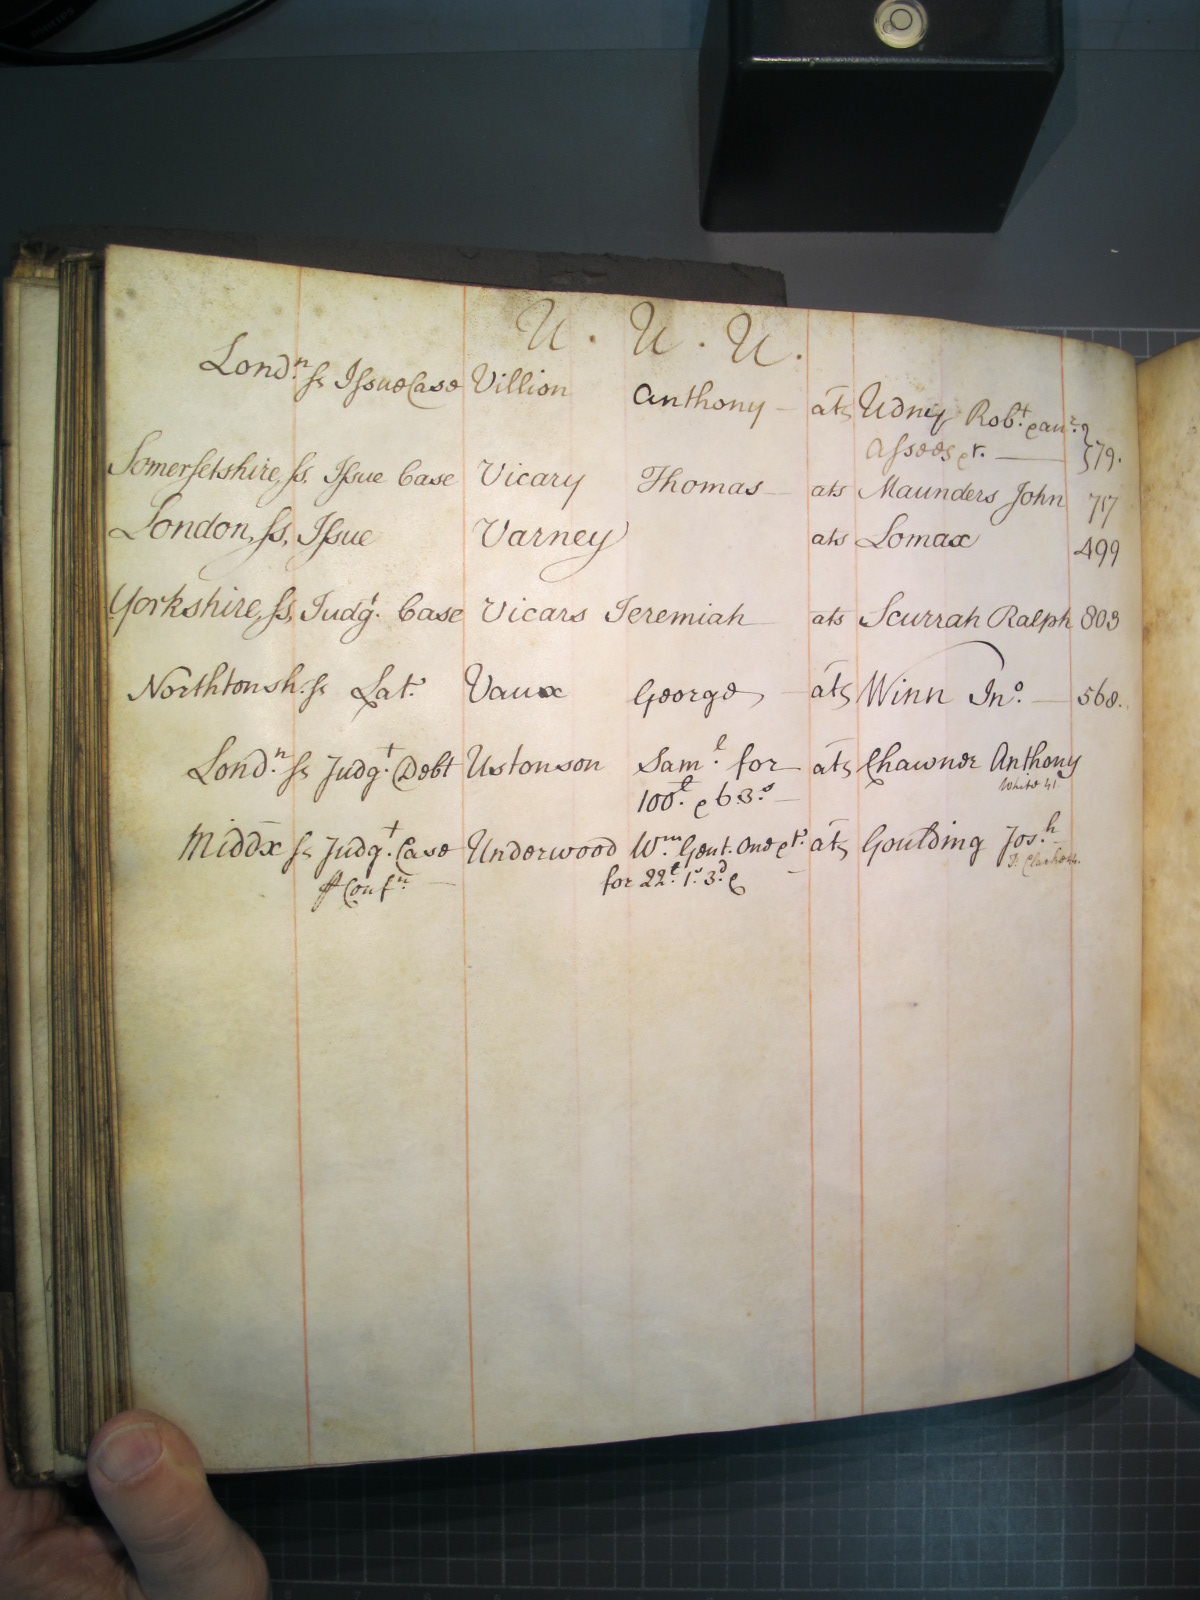 U . U . U .
Lond.n ss Issue Case Villion Anthony ats Udny Rob.t
Assees &c. 579.
Somersetshire, ss. Issue Case Vicary Thomas ats Maunders John 717
London, ss, Issue Varney ats Lomax 499
Yorkshire, ss, Judg.t Case Vicars Jeremiah ats Scurrah Ralph 803
Northtonsh. ss Lat. Vaux George ats Winn Jno. 568.
Lond.n ss Judg.t Debt Ustonson Sam.l for ats Chawner Anthony
100.£ & 63.s White 41.
Middx ss Judg.t Case Underwood W.m Gent. One &c. ats Goulding Jos.h
P Conf.n for 22.£ 1.s 3.d &